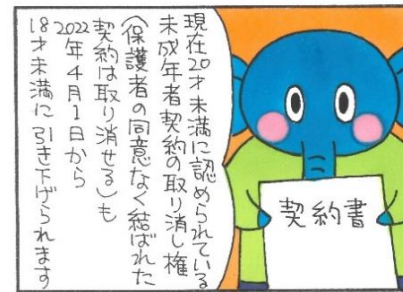 現在20才未満に認められている
未成年者契約の取り消し権
(保護者の同意なく結ばれた
契約は取り消せる)も
2022年4月1日から
18才未満に引き下げられます
契約書